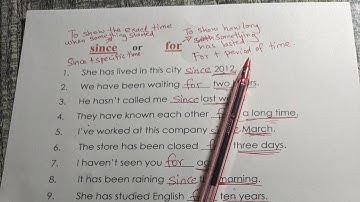 To show the exact time
when something started
To show how long
something
has lasted
since or for
Since + specific time
For + period of time.
1. She has lived in this city since 2012.
2. We have been waiting for two
3. He hasn't called me since last
4. They have known each other for a long time.
5. I've worked at this company since March.
6. The store has been closed for three days.
7. I haven't seen you for
8. It has been raining since morning.
9. She has studied English for ten years.